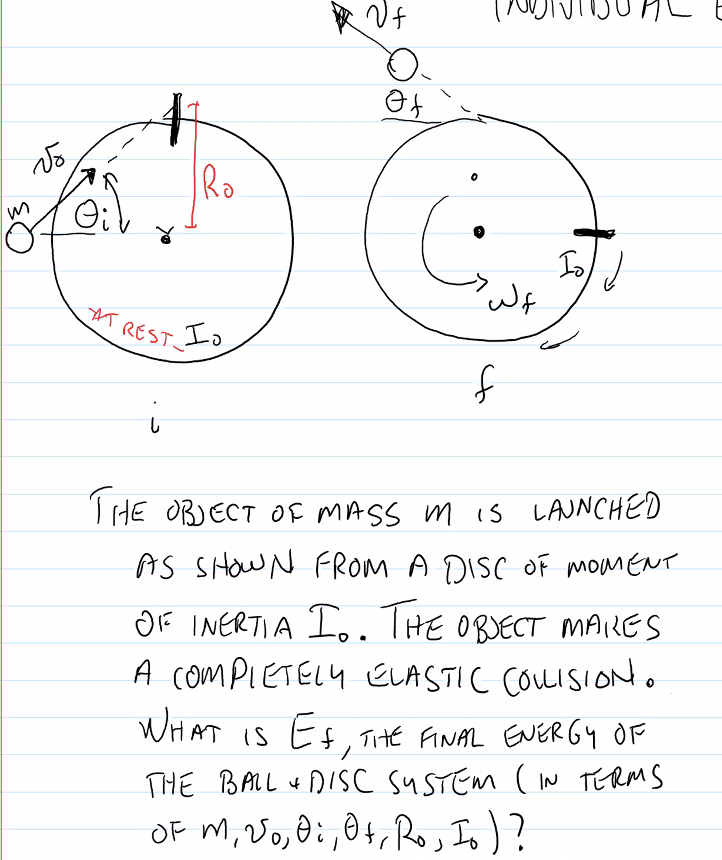 INDIVIDUAL
v_f
θ_f
v_0
m
θ_i
R_0
AT REST
I_0
I_0
ω_f
i
f
THE OBJECT OF MASS m IS LAUNCHED
AS SHOWN FROM A DISC OF MOMENT
OF INERTIA I_0. THE OBJECT MAKES
A COMPLETELY ELASTIC COLLISION.
WHAT IS E_f, THE FINAL ENERGY OF
THE BALL + DISC SYSTEM (IN TERMS
OF m, v_0, θ_i, θ_f, R_0, I_0)?